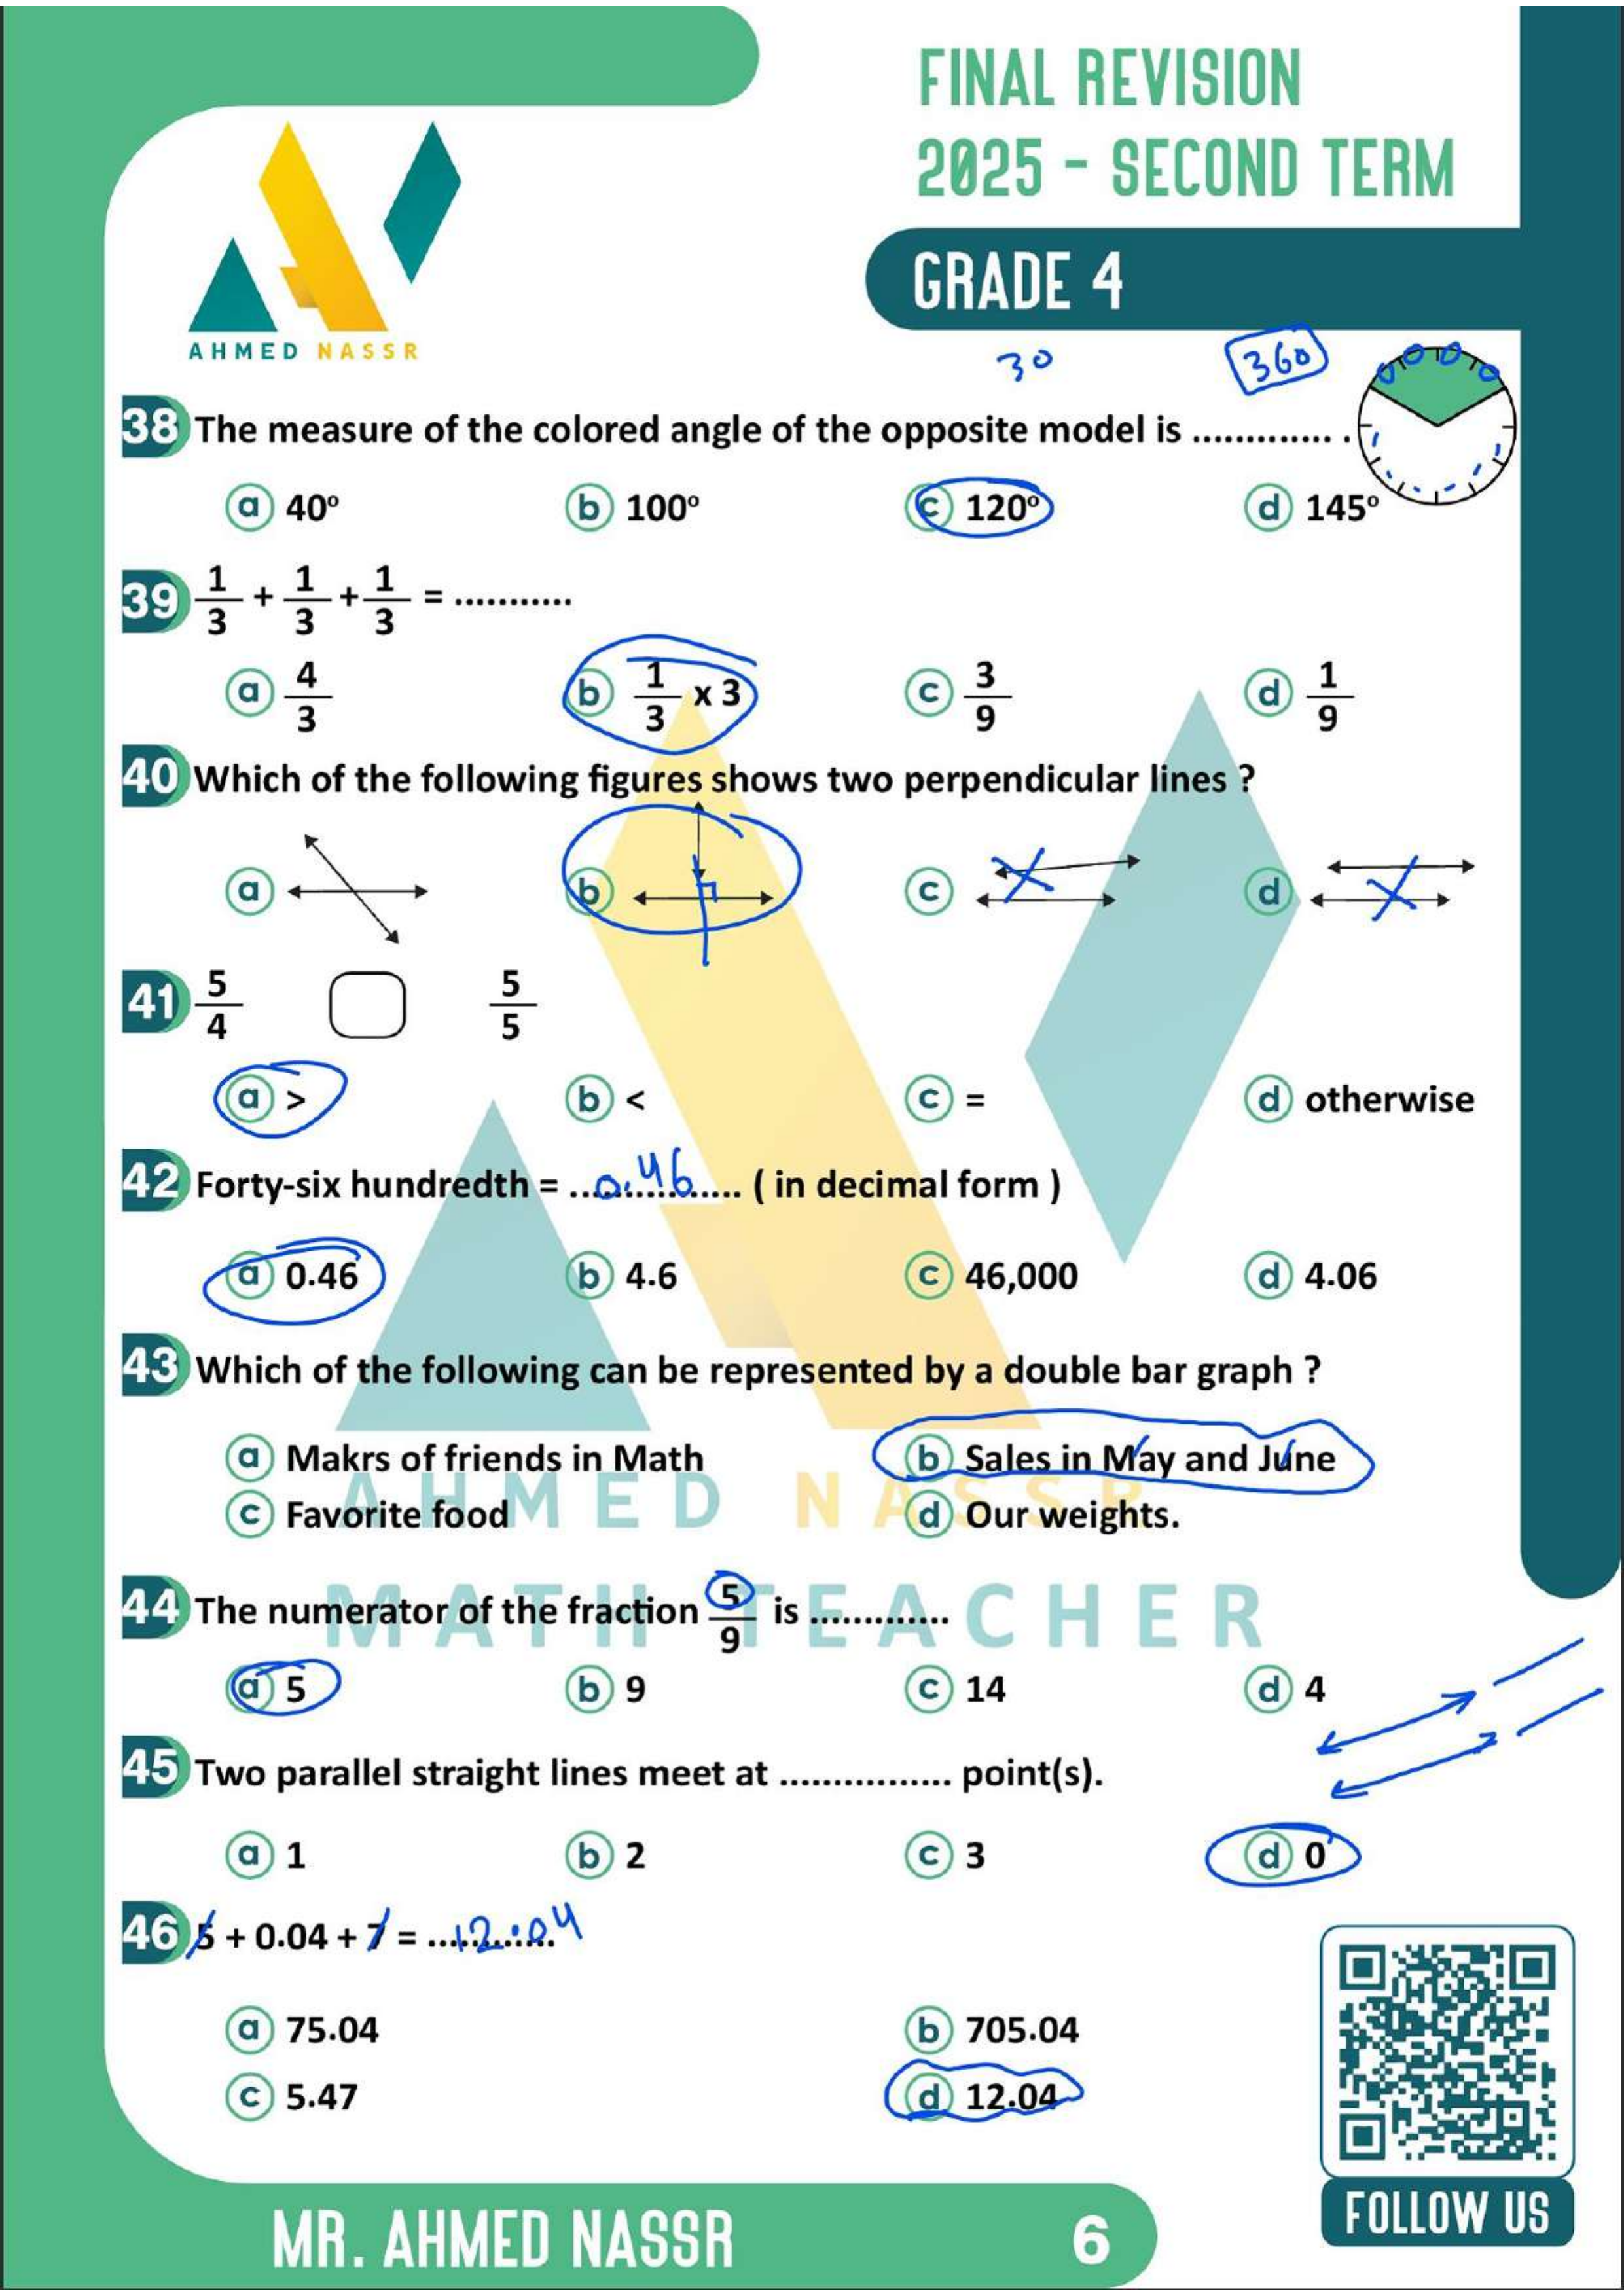 FINAL REVISION
2025 - SECOND TERM
GRADE 4
AHMED NASSR
30
360
38 The measure of the colored angle of the opposite model is ............. .
a 40º b 100º c 120º d 145º
39 1/3 + 1/3 + 1/3 = ...........
a 4/3 b 1/3 x 3 c 3/9 d 1/9
40 Which of the following figures shows two perpendicular lines ?
a b c d
41 5/4 5/5
a > b < c = d otherwise
42 Forty-six hundredth = ...0.46... ( in decimal form )
a 0.46 b 4.6 c 46,000 d 4.06
43 Which of the following can be represented by a double bar graph ?
a Makrs of friends in Math b Sales in May and June
c Favorite food d Our weights.
AHMED NASSR
MATH TEACHER
44 The numerator of the fraction 5/9 is .............
a 5 b 9 c 14 d 4
45 Two parallel straight lines meet at ................ point(s).
a 1 b 2 c 3 d 0
46 5 + 0.04 + 7 = ...12.04
a 75.04 b 705.04
c 5.47 d 12.04
FOLLOW US
MR. AHMED NASSR 6